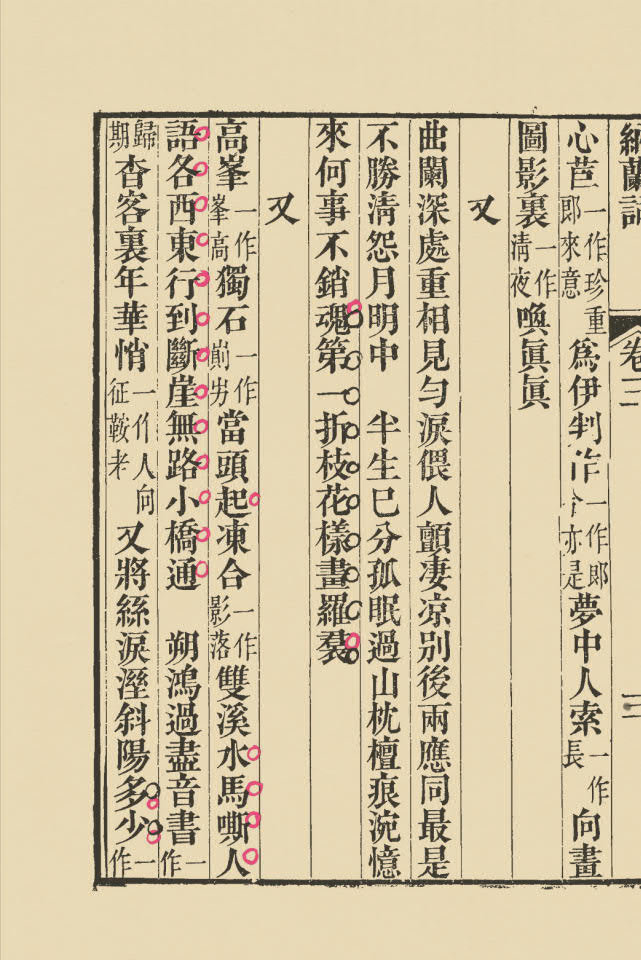 納蘭詞 卷三
心苣一作珍重郎來意為伊判作一作郎亦是夢中人索一作長向畫
圖影裏一作清夜喚眞眞
又
曲闌深處重相見勻淚偎人顫凄凉别後兩應同最是
不勝清怨月明中 半生已分孤眠過山枕檀痕涴憶
來何事不銷魂第一折枝花樣畫羅裠
又
高峯一作峯高獨石一作崱屴當頭起凍合一作影落雙溪水馬嘶人
語各西東行到斷崖無路小橋通 朔鴻過盡音書一作
歸期杳客裏年華悄一作人向征鞍老又將絲淚溼斜陽多少一作